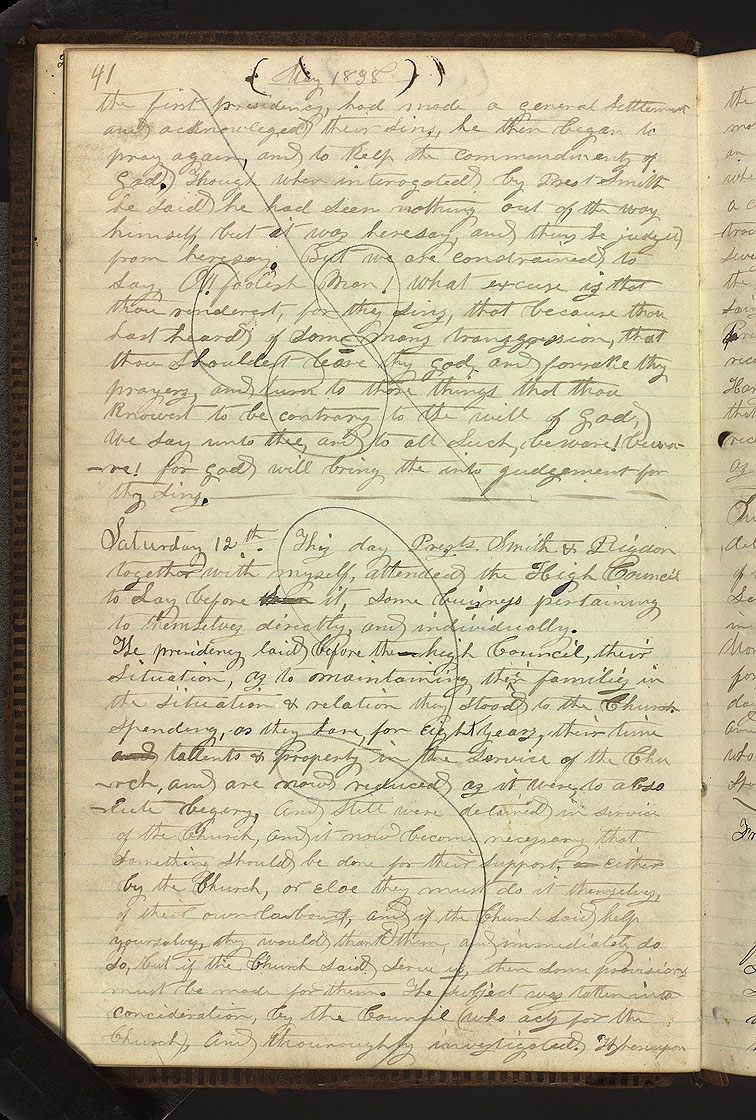 41 ( May 1838 ) )
the first presidency, had made a general settlement
and acknowleged their sins, he then began to
pray again, and to keep the commandments of
God. Though when interogated by Prest Smith
he said he had seen nothing out of the way
himself but it was heresay, and thus he judged
from heresay. But we are constrained to
say, O! foolish Man! what excuse is that
thou renderest, for thy sins, that because thou
hast heard of some mans transgression, that
thou shouldest leave thy God, and forsake thy
prayers, and turn to those things that thou
knowest to be contrary to the will of God,
we say unto thee, and to all such, beware! bewa-
-re! for God will bring the into judgement for
thy sins.
Saturday 12th. This day Prests Smith & Rigdon
together with myself, attended the High Council
to lay before it, some buisness pertaining
to themselves directly, and individually.
The presidency laid before the high Council, their
situation, as to maintaining their families in
the situation & relation they stood to the Church
spending, as they have, for eight years, their time
and tallents & property in the service of the Chu
-rch, and are now reduced as it were to abso
-lute begery, and still were detained in service
of the Church, and it now become necessary that
something should be done for their support, either
by the Church, or else they must do it themselves,
of their own labours, and if the Church said help
yourselves, they would thank them, and immediately do
so, but if the Church said, serve us, then some provisions
must be made for them. The subject was taken into
concideration, by the Council who acts for the
Church, and thouroughly investigated. Whereupon